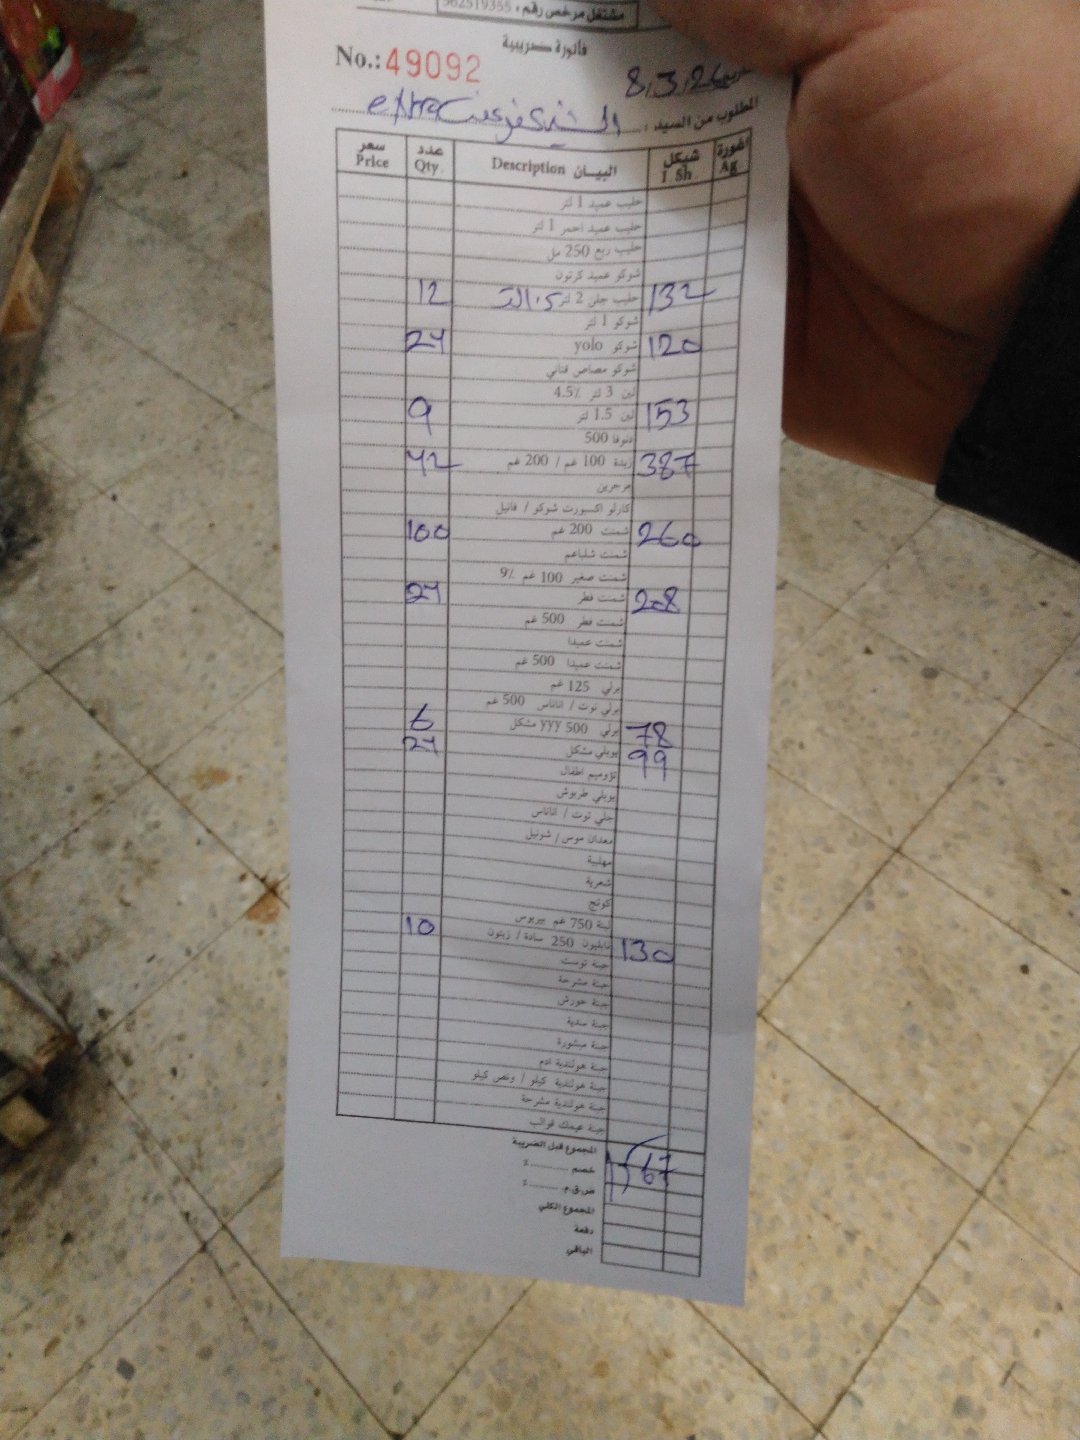 مشتغل مرخص رقم: 562519355
فاتورة ضريبية
No.: 49092
8.3.26
المطلوب من السيد: extra
سعر Price عدد Qty. البيان Description شيكل I. Sh اغورة Ag.
حليب عميد 1 لتر
حليب عميد احمر 1 لتر
حليب ربع 250 مل
شوكو عميد كرتون
12 حليب جلن 2 لتر 132
شوكو 1 لتر
24 شوكو yolo 120
شوكو مصاص قناني
لبن 3 لتر 4.5%
9 لبن 1.5 لتر 153
دنوفا 500
42 زبدة 100 غم / 200 غم 387
مرجرين
كارلو اكسبورت شوكو / فانيل
100 شمنت 200 غم 260
شمنت شلباعم
شمنت صغير 100 غم 9%
24 شمنت فطر 208
شمنت فطر 500 غم
شمنت عميدا
شمنت عميدا 500 غم
برلي 125 غم
برلي توت / اناناس 500 غم
6 برلي 500 yyy مشكل 78
24 يوبلي مشكل 99
تؤوميم اطفال
يوبلي طربوش
جلي توت / اناناس
معدان موس / شونيل
مهلبية
شعرية
كوتج
لبنة 750 غم بيريوس
10 نابليون 250 سادة / زيتون 130
جبنة توست
جبنة مشرحة
جبنة حورش
جبنة سدية
جبنة مبشورة
جبنة هولندية ادم
جبنة هولندية كيلو / ونص كيلو
جبنة هولندية مشرحة
جبنة عيمك قوالب
المجموع قبل الضريبة
خصم ........... % 1567
ض.ق.م. ........... %
المجموع الكلي
دفعة
الباقي